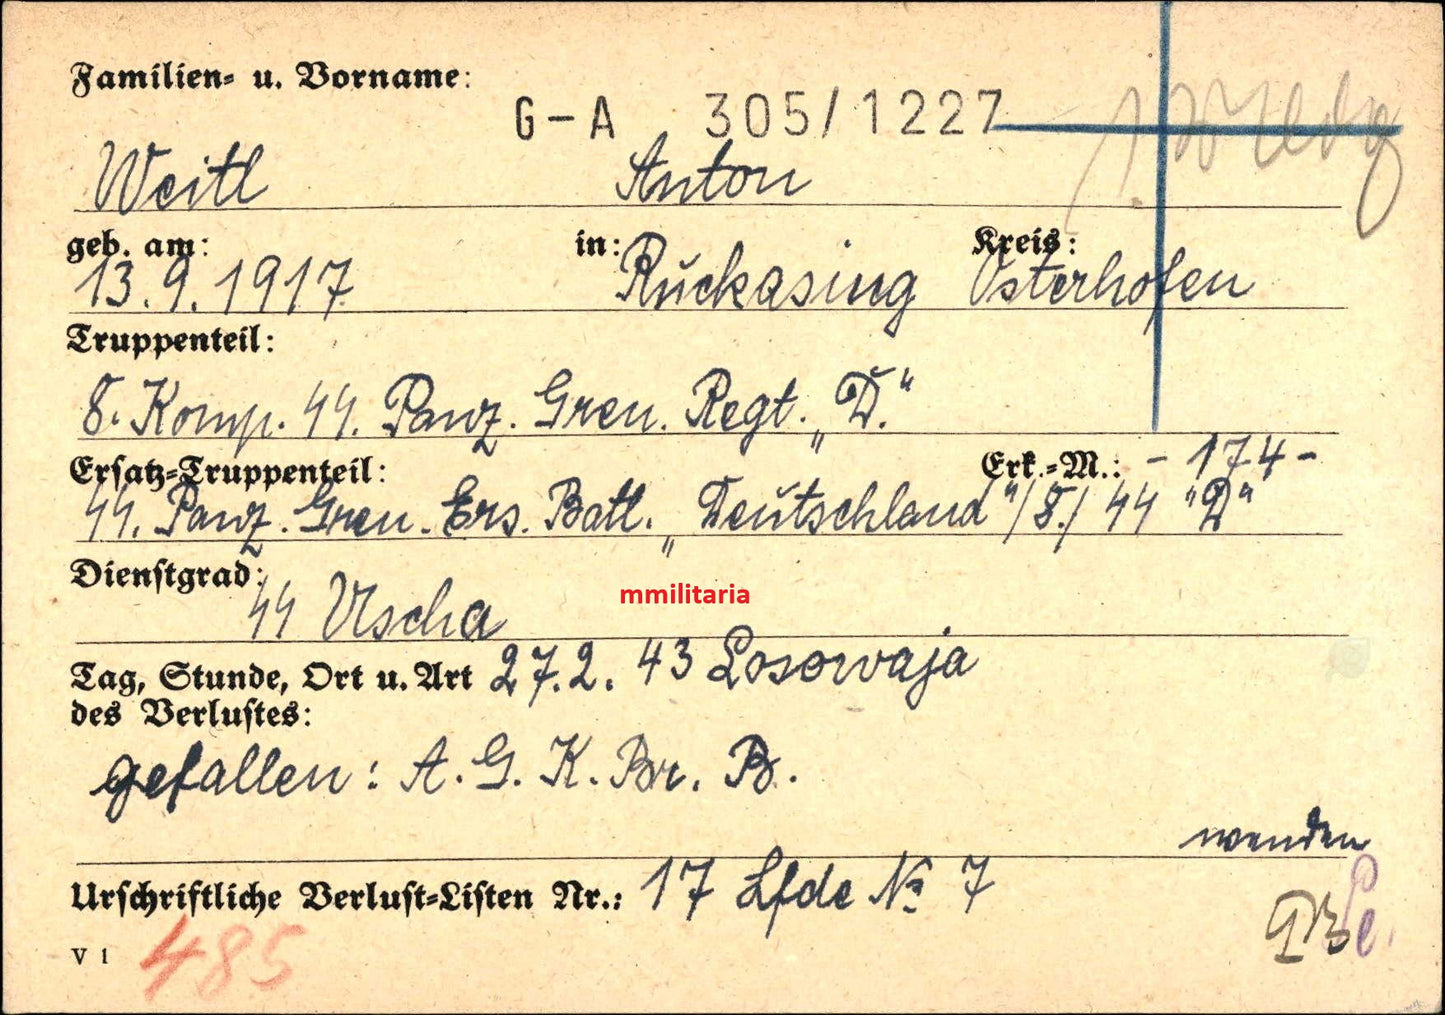 Familien- u. Vorname:
G-A 305/1227
Weitl Anton
geb. am: in: Kreis:
13.9.1917 Ruckasing Osterhofen
Truppenteil:
8. Komp. SS. Panz. Gren. Regt. „D.“
Ersatz-Truppenteil: Erk.-M.: - 174 -
SS. Panz. Gren. Ers. Batl. „Deutschland“/8./ SS "D"
Dienstgrad:
SS Uscha
mmilitaria
Tag, Stunde, Ort u. Art 27.2. 43 Losowaja
des Verlustes:
gefallen: A. G. K. Br. B.
wenden
Urschriftliche Verlust-Listen Nr.: 17 Lfde № 7
V 1 485